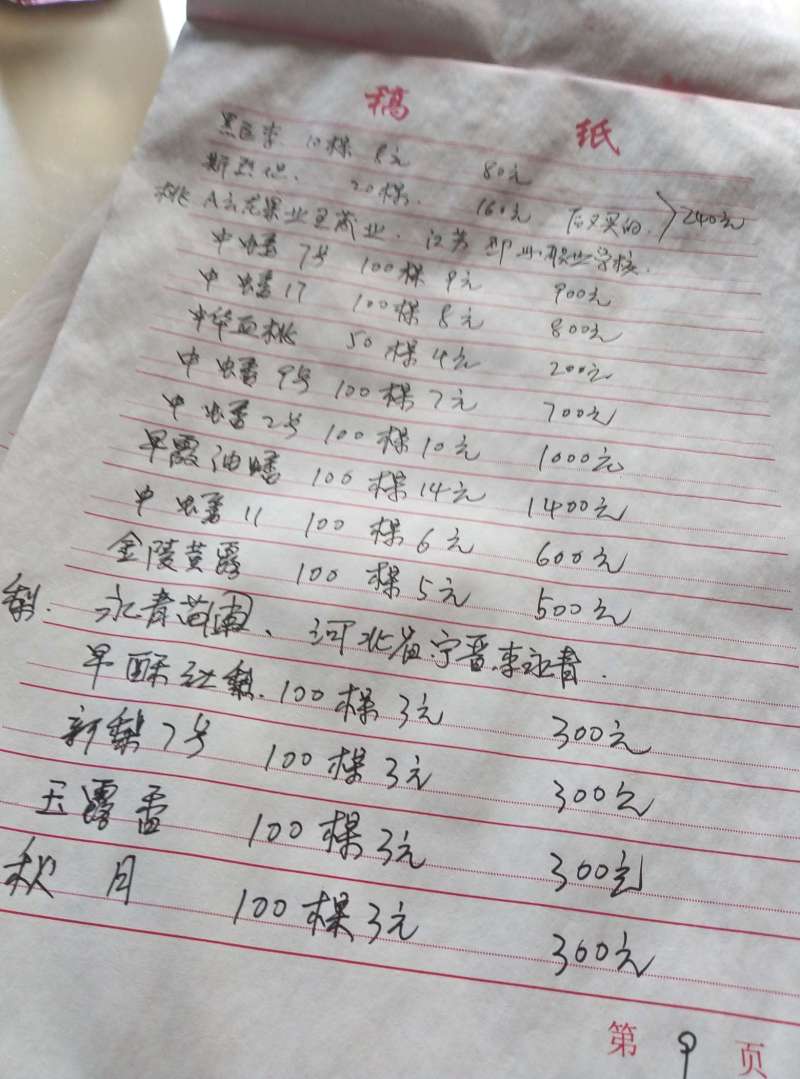 稿 纸
黑宝李 10棵 8元 80元
斯烈 20棵 160元 后又买的 240元
桃 A 云龙果业 业 江苏 职业学校
中蟠7号 100棵 9元 900元
中蟠17 100棵 8元 800元
中华血桃 50棵 4元 200元
中蟠9号 100棵 7元 700元
中蟠2号 100棵 10元 1000元
早霞油蟠 100棵 14元 1400元
中蟠11 100棵 6元 600元
金陵黄露 100棵 5元 500元
梨. 永青苗圃、河北省宁晋李永青.
早酥红梨. 100棵 3元 300元
新梨7号 100棵 3元 300元
玉露香 100棵 3元 300元
秋月 100棵 3元 300元
第 9 页